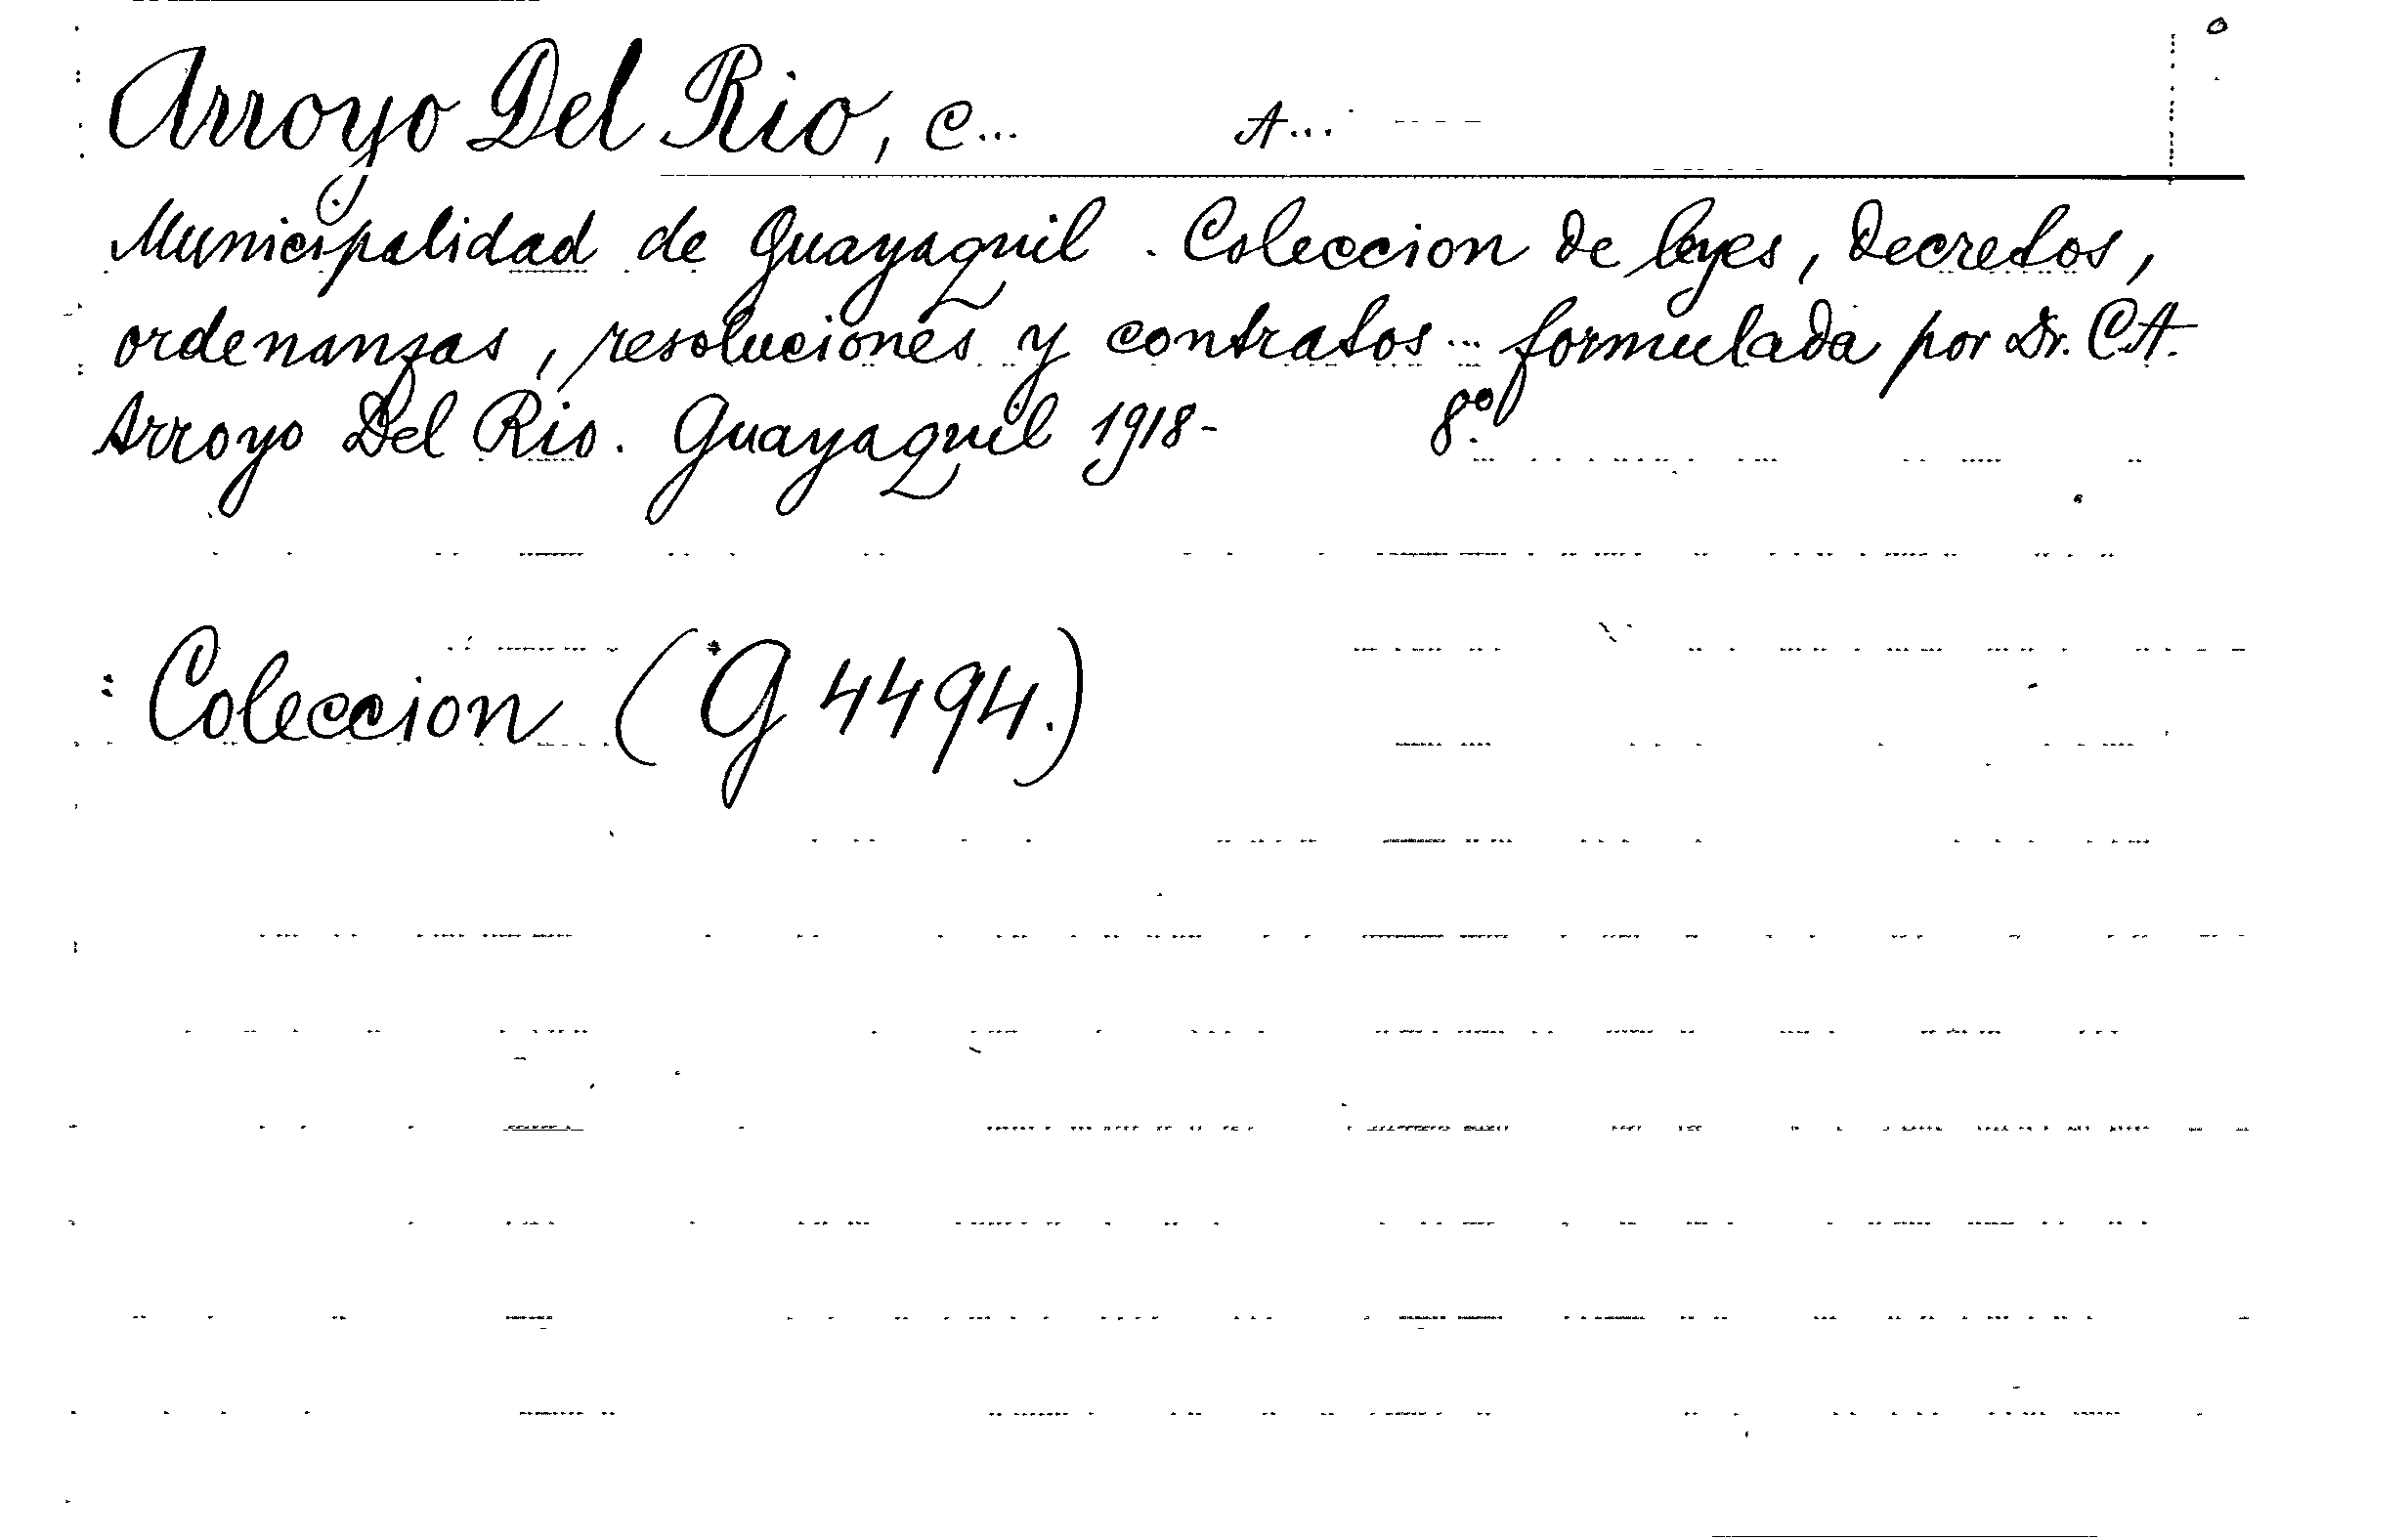 Arroyo Del Rio, C... A...
Municipalidad de Guayaquil. Coleccion de leyes, decretos,
ordenanzas, resoluciones y contratos... formulada por Dr. C.A.
Arroyo Del Rio. Guayaquil 1918- 8º
Coleccion (G 4494.)